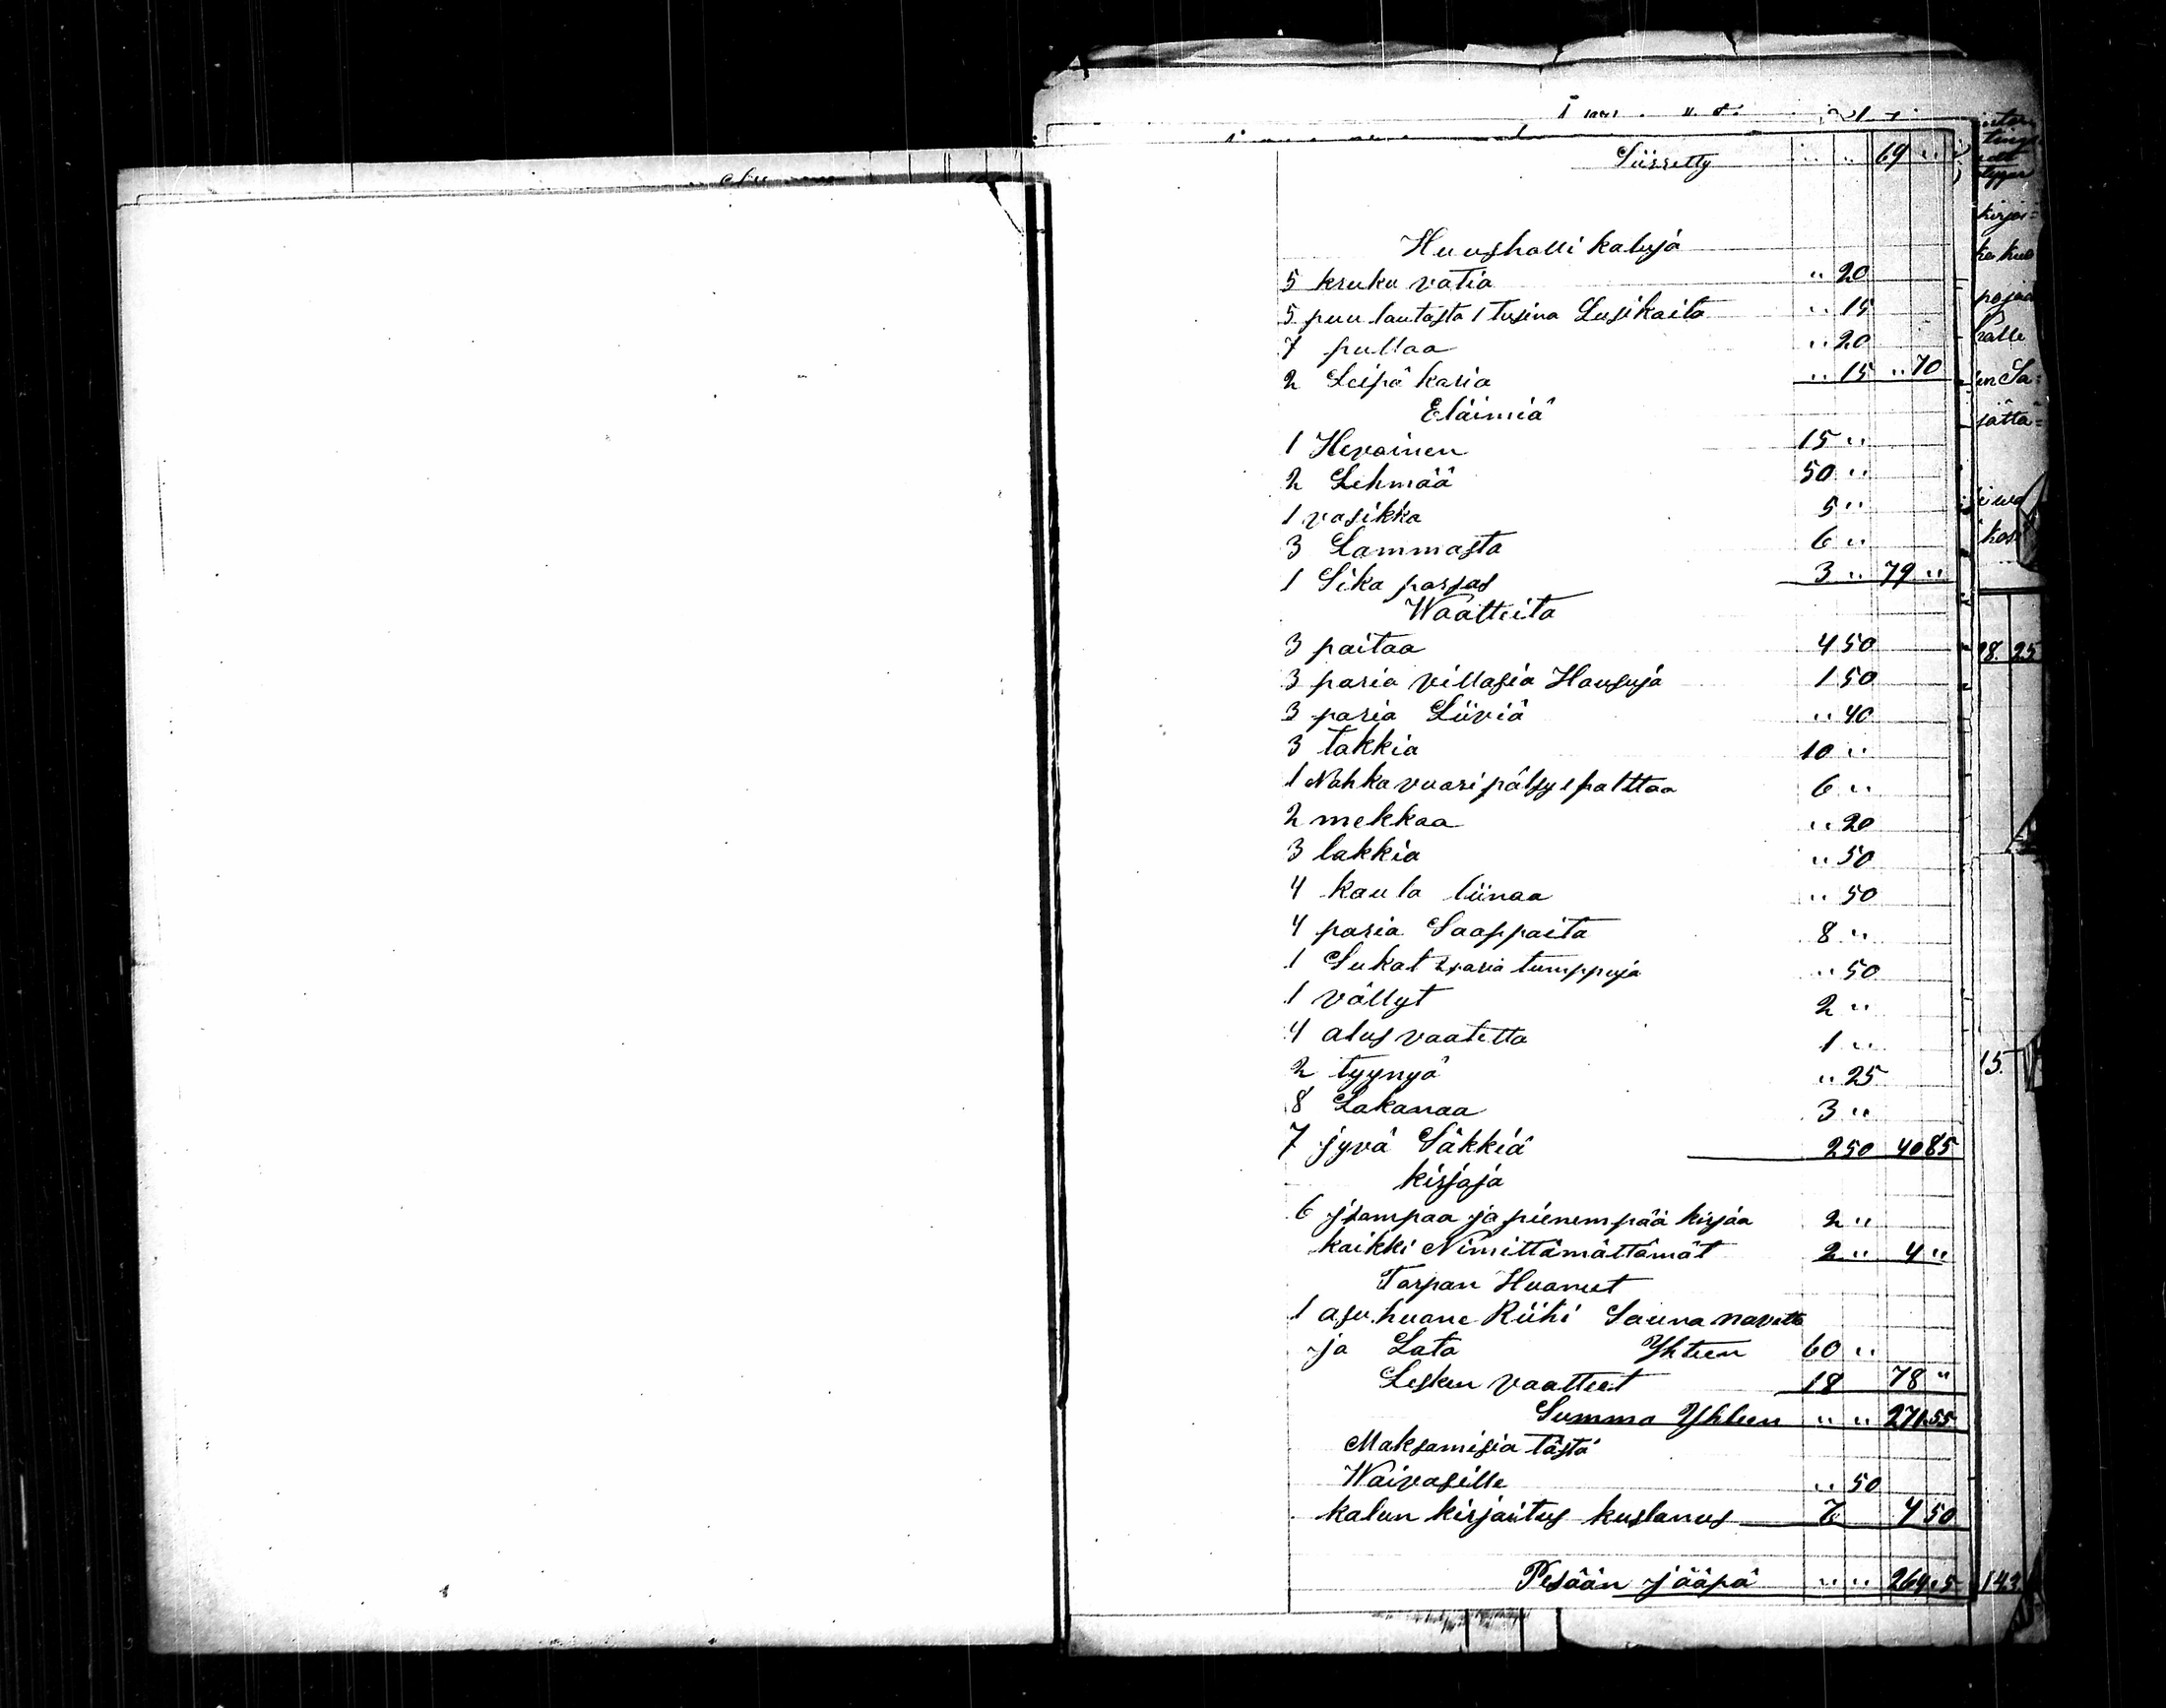 Siirretty " " 69 "
Huushalli kaluja
5 kruku vatia " 20
5 puu lautasta 1 tusina Lusikaita " 15
7 pullaa " 20
2 Leipä karia " 15 " 70
Eläimiä
1 Hevoinen 15 "
2 Lehmää 50 "
1 vasikka 5 "
3 Lammasta 6 "
1 Sika porsas 3 " 79 "
Waatteita
3 paitaa 4 50
3 paria villasia Housuja 1 50
3 paria Liiviä " 40
3 takkia 10 "
1 Nahka vuori pälsy 6 "
2 mekkaa " 20
3 lakkia " 50
4 kaula liinaa " 50
4 paria Saappaita 8 "
1 Sukat 2 paria tumppuja " 50
1 vällyt 2 "
4 alus vaatetta 1 "
2 tyynyä " 25
8 Lakanaa 3 "
7 jyvä Säkkiä 2 50 40 85
kirjaja
6 jsompaa ja pienempää kirjaa 2 "
kaikki Nimittämättämät 2 " 4 "
Torpan Huaneet
1 asu huane Riihi Sauna navetta
ja Lato Yhteen 60 "
Lesken vaatteet 18 78 "
Summa Yhteen " " 271 55
Maksamisia tästä
Waivasille " 50
kalun kirjaitus kustanus 7 4 50
Pesään jääpä " " 264 5